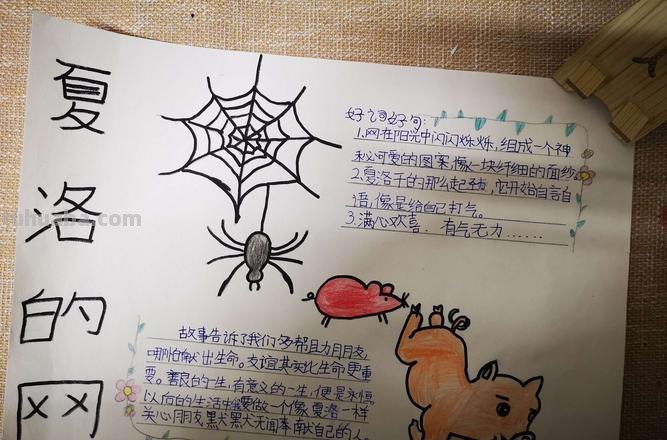 夏洛的网
好词好句:
1.网在阳光中闪闪烁烁,组成一个神
秘可爱的图案,像一块纤细的面纱
2.夏洛干的那么起劲,它开始自言自
语,像是给自己打气。
3.满心欢喜 有气无力……
故事告诉了我们多帮且力月月友,
哪怕献出生命。友谊其实比生命更重
要。善良的一生,有意义的一生,便是永恒
以后的生活中要做一个像夏洛一样
关心朋友默默无闻奉献自己的人。
fuhuaba.com